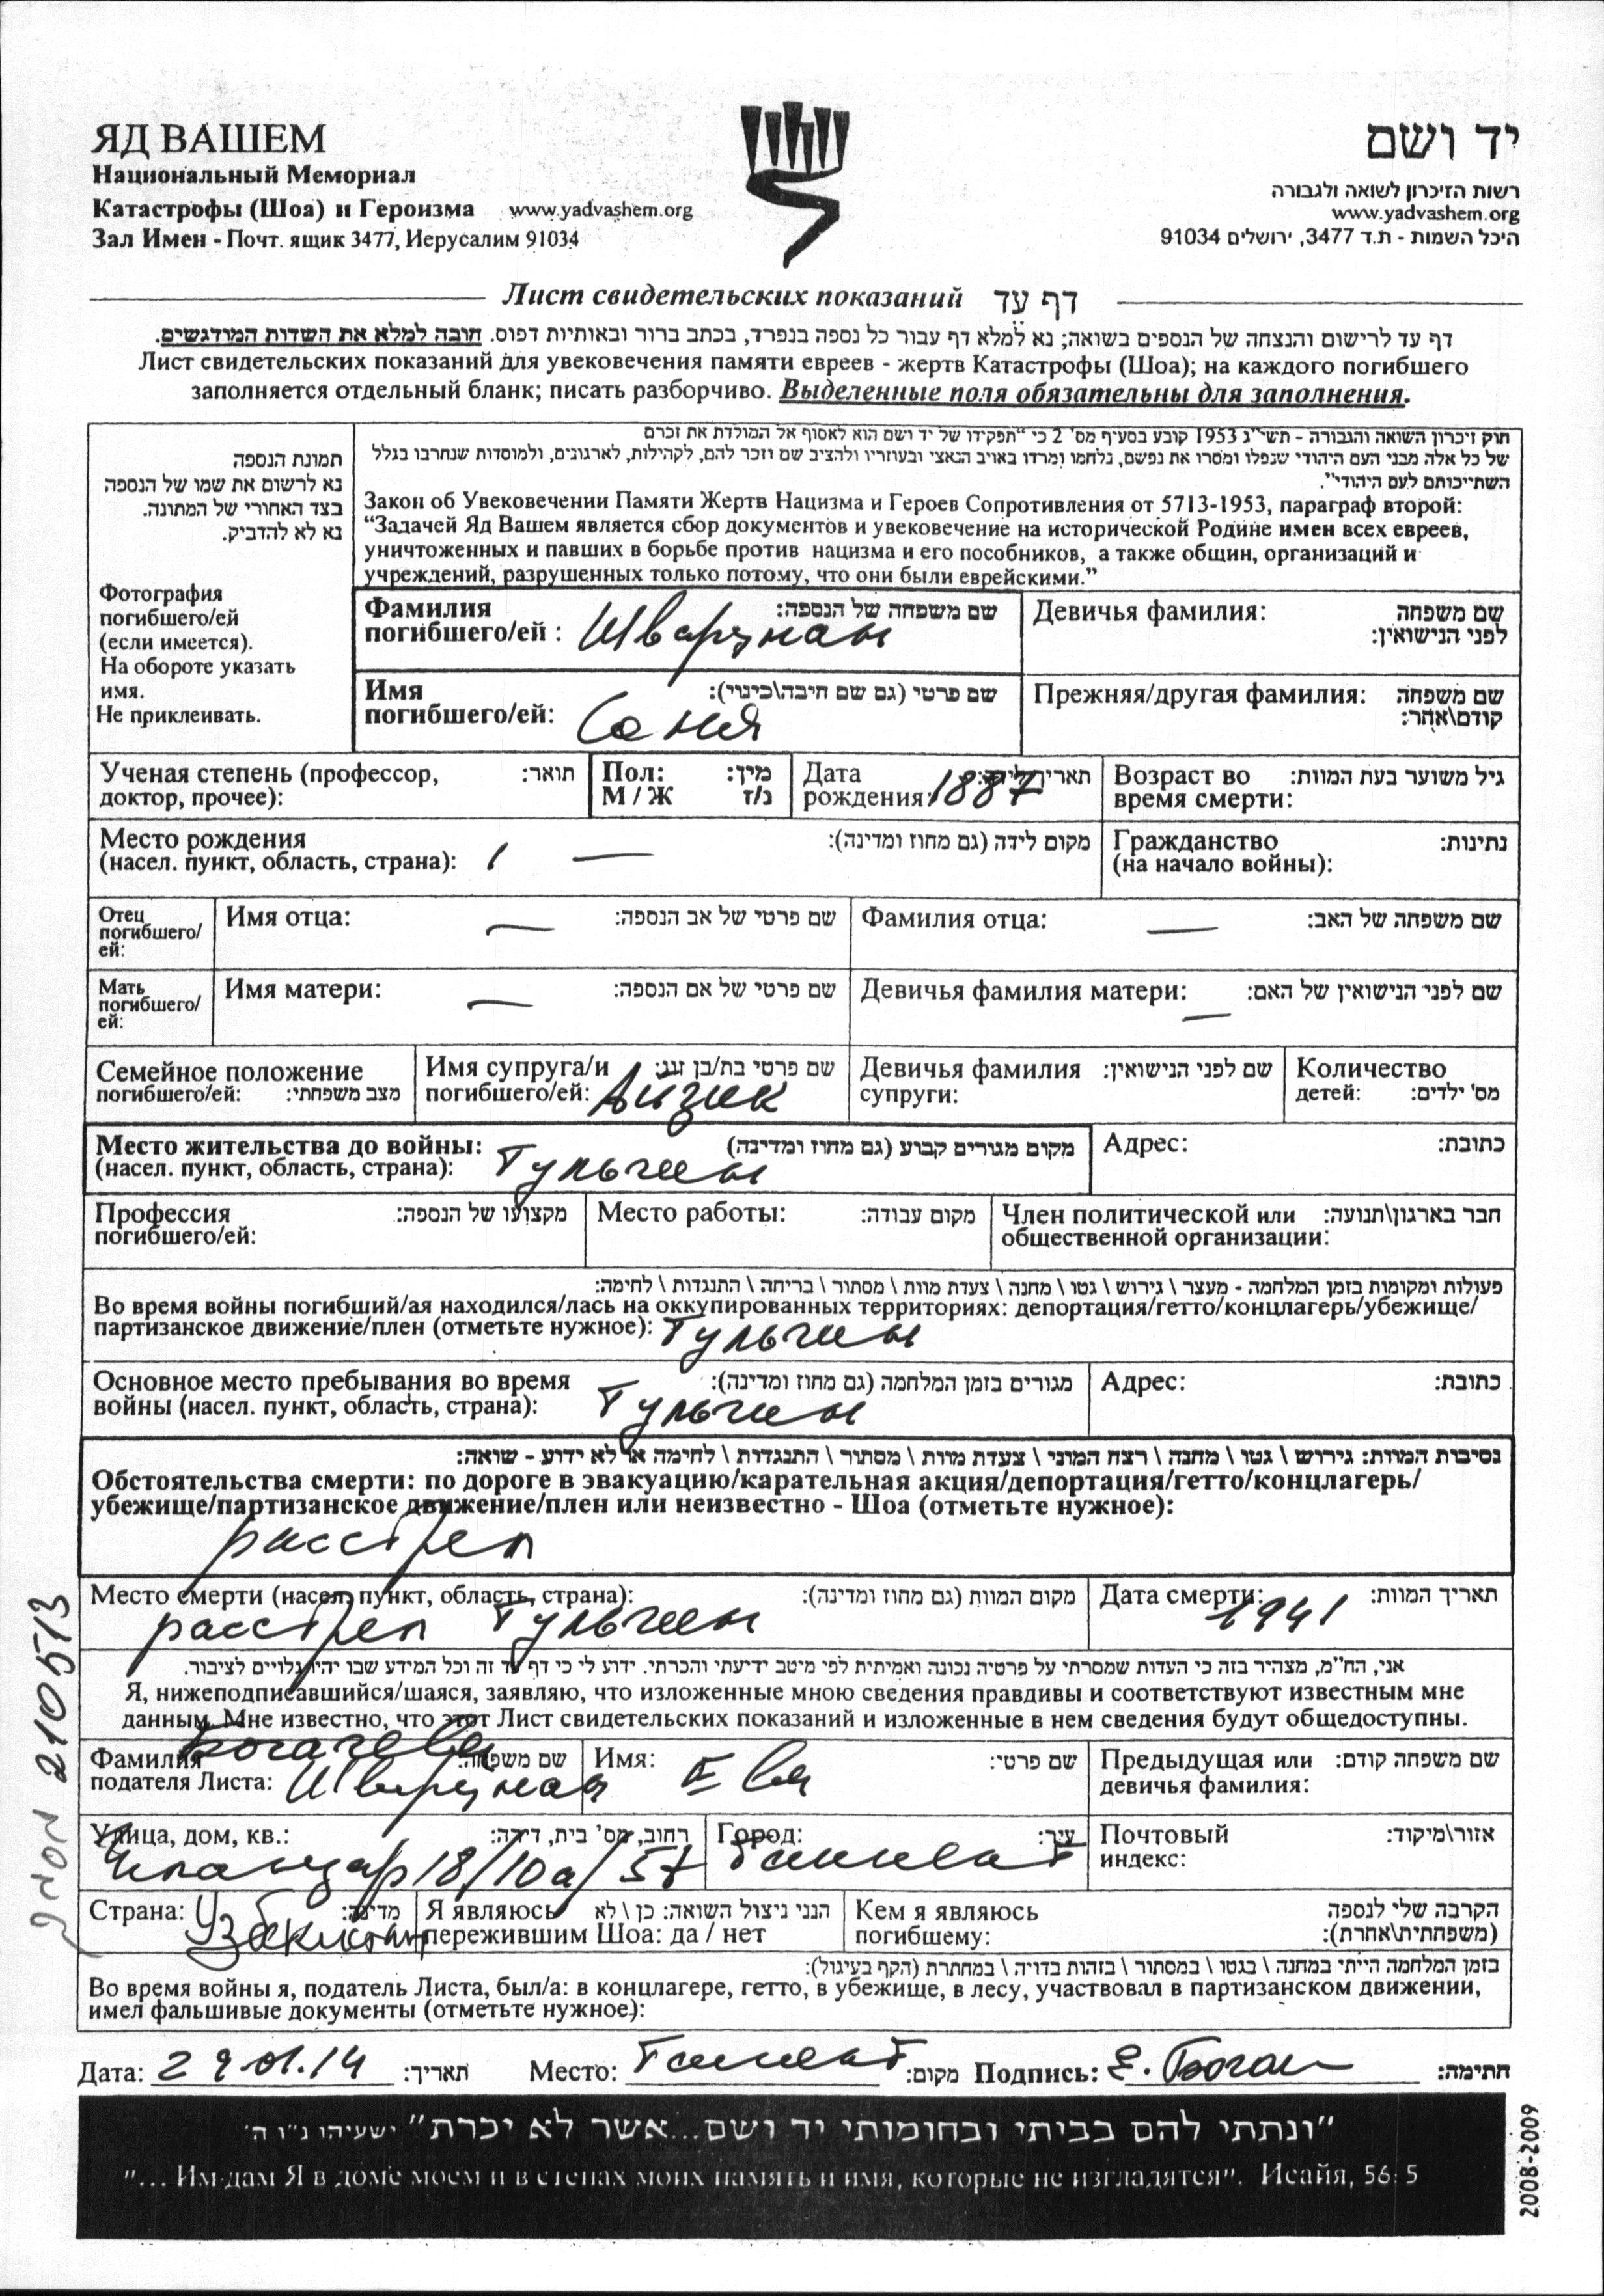 ЯД ВАШЕМ
Национальный Мемориал
Катастрофы (Шоа) и Героизма www.yadvashem.org
Зал Имен - Почт. ящик 3477, Иерусалим 91034
יד ושם
רשות הזיכרון לשואה ולגבורה
www.yadvashem.org
היכל השמות - ת.ד 3477, ירושלים 91034
Лист свидетельских показаний דף עד
דף עד לרישום והנצחה של הנספים בשואה; נא למלא דף עבור כל נספה בנפרד, בכתב ברור ובאותיות דפוס. חובה למלא את השדות המודגשים.
Лист свидетельских показаний для увековечения памяти евреев - жертв Катастрофы (Шоа); на каждого погибшего
заполняется отдельный бланк; писать разборчиво. Выделенные поля обязательны для заполнения.
תמונת הנספה
נא לרשום את שמו של הנספה
בצד האחורי של המתונה.
נא לא להדביק.
Фотография
погибшего/ей
(если имеется).
На обороте указать
имя.
Не приклеивать.
חוק זיכרון השואה והגבורה - תשי״ג 1953 קובע בסעיף מס' 2 כי ״תפקידו של יד ושם הוא לאסוף אל המולדת את זכרם
של כל אלה מבני העם היהודי שנפלו ומסרו את נפשם, נלחמו ומרדו באויב הנאצי ובעוזריו ולהציב שם וזכר להם, לקהילות, לארגונים, ולמוסדות שנחרבו בגלל
השתייכותם לעם היהודי״.
Закон об Увековечении Памяти Жертв Нацизма и Героев Сопротивления от 5713-1953, параграф второй:
“Задачей Яд Вашем является сбор документов и увековечение на исторической Родине имен всех евреев,
уничтоженных и павших в борьбе против нацизма и его пособников, а также общин, организаций и
учреждений, разрушенных только потому, что они были еврейскими.”
Фамилия שם משפחה של הנספה:
погибшего/ей : Шварцман
Девичья фамилия: שם משפחה
לפני הנישואין:
Имя שם פרטי (גם שם חיבה\כינוי):
погибшего/ей: Соня
Прежняя/другая фамилия: שם משפחה
קודם\אחר:
Ученая степень (профессор, תואר:
доктор, прочее):
Пол: מין:
М / Ж נ/ז
Дата תאריך לידה:
рождения: 1887
Возраст во גיל משוער בעת המוות:
время смерти:
Место рождения מקום לידה (גם מחוז ומדינה):
(насел. пункт, область, страна): —
Гражданство נתינות:
(на начало войны):
Отец
погибшего/
ей:
Имя отца: — שם פרטי של אב הנספה:
Фамилия отца: — שם משפחה של האב:
Мать
погибшего/
ей:
Имя матери: — שם פרטי של אם הנספה:
Девичья фамилия матери: — שם לפני הנישואין של האם:
Семейное положение
погибшего/ей: מצב משפחתי:
Имя супруга/и שם פרטי בת/בן זוג:
погибшего/ей: Айзик
Девичья фамилия שם לפני הנישואין:
супруги:
Количество
детей: מס' ילדים:
Место жительства до войны: מקום מגורים קבוע (גם מחוז ומדינה)
(насел. пункт, область, страна): Тульчин
Адрес: כתובת:
Профессия מקצועו של הנספה:
погибшего/ей:
Место работы: מקום עבודה:
Член политической или חבר בארגון\תנועה:
общественной организации:
פעולות ומקומות בזמן המלחמה - מעצר \ גירוש \ גטו \ מחנה \ צעדת מוות \ מסתור \ בריחה \ התנגדות \ לחימה:
Во время войны погибший/ая находился/лась на оккупированных территориях: депортация/гетто/концлагерь/убежище/
партизанское движение/плен (отметьте нужное): Тульчин
Основное место пребывания во время מגורים בזמן המלחמה (גם מחוז ומדינה):
войны (насел. пункт, область, страна): Тульчин
Адрес: כתובת:
נסיבות המוות: גירוש \ גטו \ מחנה \ רצח המוני \ צעדת מוות \ מסתור \ התנגדות \ לחימה או לא ידוע - שואה:
Обстоятельства смерти: по дороге в эвакуацию/карательная акция/депортация/гетто/концлагерь/
убежище/партизанское движение/плен или неизвестно - Шоа (отметьте нужное):
расстрел
Место смерти (насел. пункт, область, страна): מקום המוות (גם מחוז ומדינה):
расстрел Тульчин
Дата смерти: 1941 תאריך המוות:
אני, הח״מ, מצהיר בזה כי העדות שמסרתי על פרטיה נכונה ואמיתית לפי מיטב ידיעתי והכרתי. ידוע לי כי דף עד זה וכל המידע שבו יהיו גלויים לציבור.
Я, нижеподписавшийся/шаяся, заявляю, что изложенные мною сведения правдивы и соответствуют известным мне
данным. Мне известно, что этот Лист свидетельских показаний и изложенные в нем сведения будут общедоступны.
Богачева
Фамилия שם משפחה:
подателя Листа: Шварцман
Имя: Ева שם פרטי:
Предыдущая или שם משפחה קודם:
девичья фамилия:
Улица, дом, кв.: רחוב, מס' בית, דירה:
18/10а/57
Город: עיר:
Ташкент
Почтовый אזור\מיקוד:
индекс:
Страна: Узбекистан מדינה:
Я являюсь הנני ניצול השואה: כן \ לא
пережившим Шоа: да / нет
Кем я являюсь הקרבה שלי לנספה
погибшему: (משפחתית\אחרת):
בזמן המלחמה הייתי במחנה \ בגטו \ במסתור \ בזהות בדויה \ במחתרת (הקף בעיגול):
Во время войны я, податель Листа, был/а: в концлагере, гетто, в убежище, в лесу, участвовал в партизанском движении,
имел фальшивые документы (отметьте нужное):
Дата: 29.01.14 תאריך: Место: Ташкент מקום: Подпись: Е. Богач חתימה:
״ונתתי להם בביתי ובחומותי יד ושם...אשר לא יכרת״ ישעיהו נ״ו ה'
"... Им дам Я в доме моем и в стенах моих память и имя, которые не изгладятся". Исайя, 56:5
2008-2009
210513